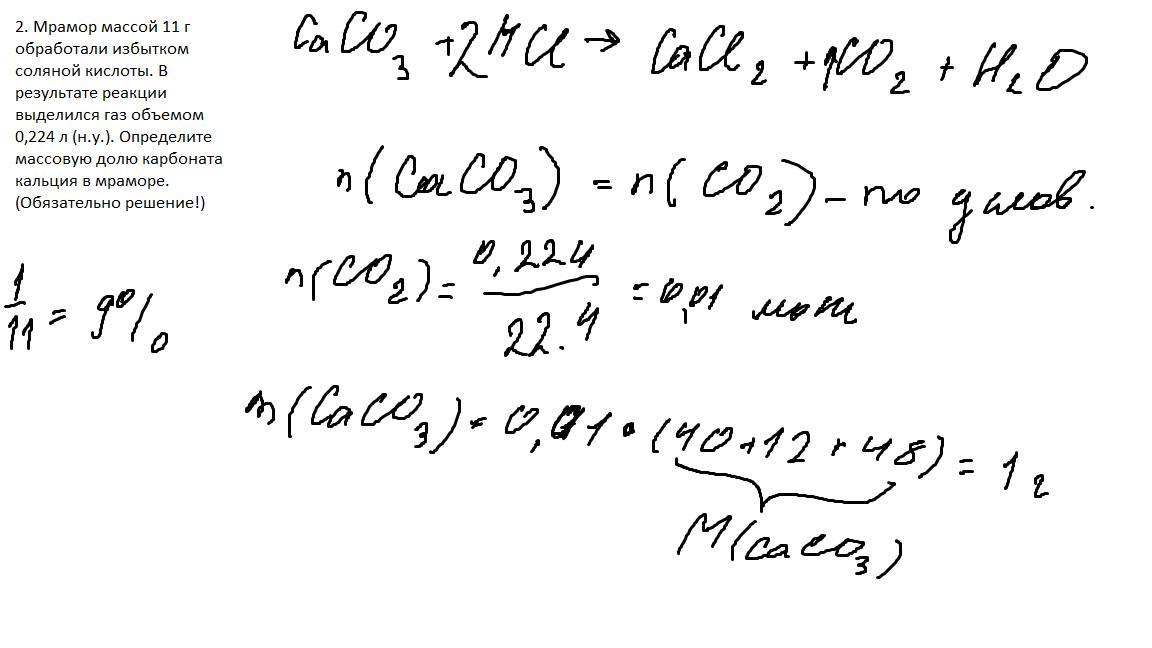 2. Мрамор массой 11 г
обработали избытком
соляной кислоты. В
результате реакции
выделился газ объемом
0,224 л (н.у.). Определите
массовую долю карбоната
кальция в мраморе.
(Обязательно решение!)
CaCO₃ + 2HCl → CaCl₂ + CO₂ + H₂O
n(CaCO₃) = n(CO₂) – по услов.
n(CO₂) = 0,224 / 22.4 = 0,01 моль
1/11 = 9%
m(CaCO₃) = 0,01 • (40+12+48) = 1 г
M(CaCO₃)